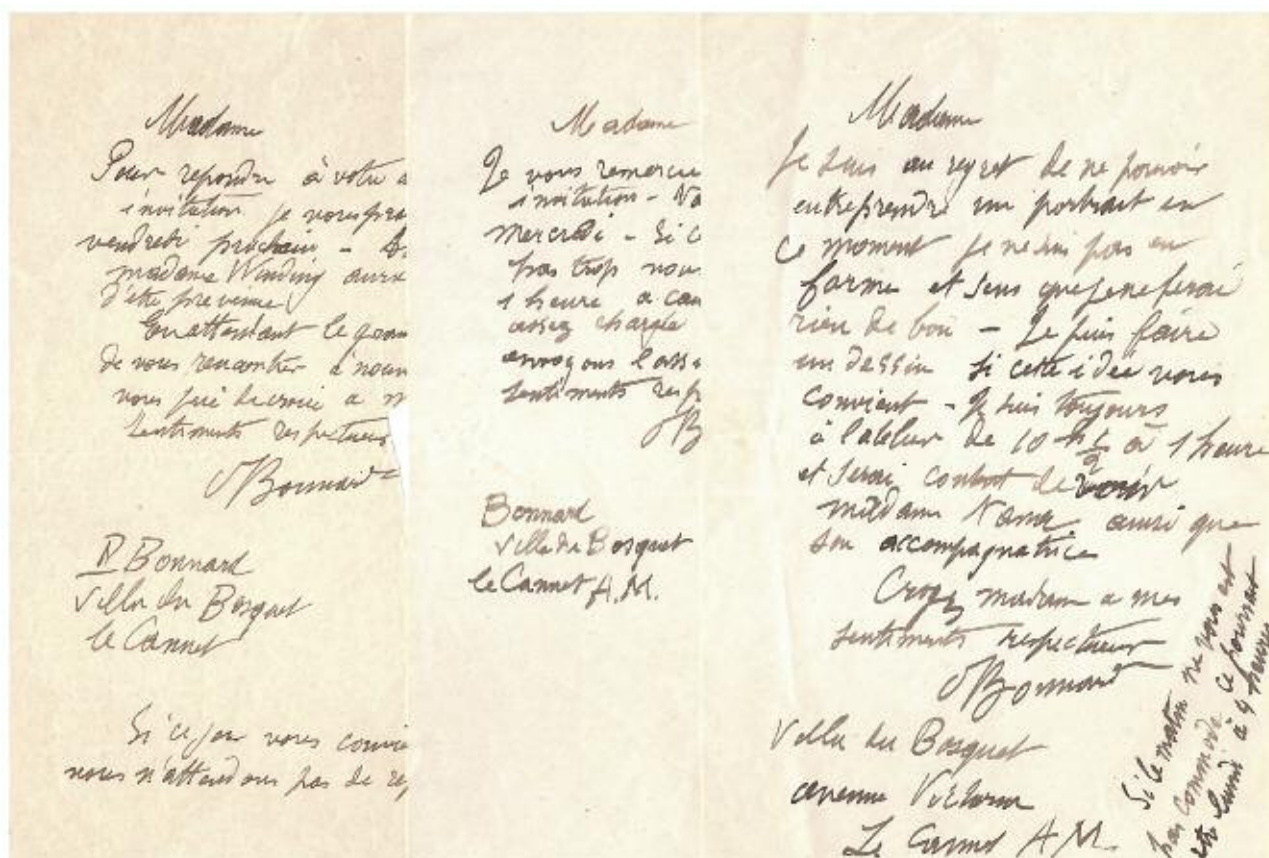 Madame
Pour repondre à votre
invitation je vous pro
vendredi prochain -
madame Winding aura
d'être prevenue
En attendant le
de vous rencontrer à nouv
vous prie de croire a m
sentiments respectueux
Bonnard
P Bonnard
Villa du Bosquet
le Cannet
Si ce jour vous convie
nous n'attendons pas de rep
Madame
Je vous remercie
invitation -
mercredi - Si c
pas trop nous
1 heure a cau
assez chargée
envoyons l'ass
sentiments resp
B
Bonnard
Villa du Bosquet
le Cannet A.M.
Madame
Je suis au regret de ne pouvoir
entreprendre un portrait en
ce moment je ne suis pas en
forme et sens que je ne ferai
rien de bon - Je puis faire
un dessin si cette idée vous
convient - Je suis toujours
à l'atelier de 10 h 1/2 à 1 heure
et serai content de voir
madame ainsi que
son accompagnatrice
Croyez madame a mes
sentiments respectueux
Bonnard
Villa du Bosquet
avenue Victoria
Le Cannet A.M.
Si le matin ne vous est
pas commode ce pourrait
être lundi à 4 heures